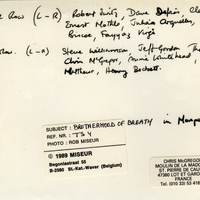 Row (L-R) Robert Juritz, Dave Defries
Ernest Mothle, Julian Arguelles,
Roscoe, Fayyaz Virji
Row. (L-R) Steve Williamson Jeff Gordon
Chris McGregor, Annie Whitehead,
Matthews, Harry Beckett.
SUBJECT: BROTHERHOOD OF BREATH in
REF. NR.: TS4
PHOTO: ROB MISEUR
© 1989 MISEUR
Begoniastraat 55
B-2580 St.-Kat.-Waver (Belgium)
CHRIS McGREGOR
MOULIN DE LA MADO
ST. PIERRE DE CAU
47380 LOT ET GARO
FRANCE
Tel: (010 33) 53 418